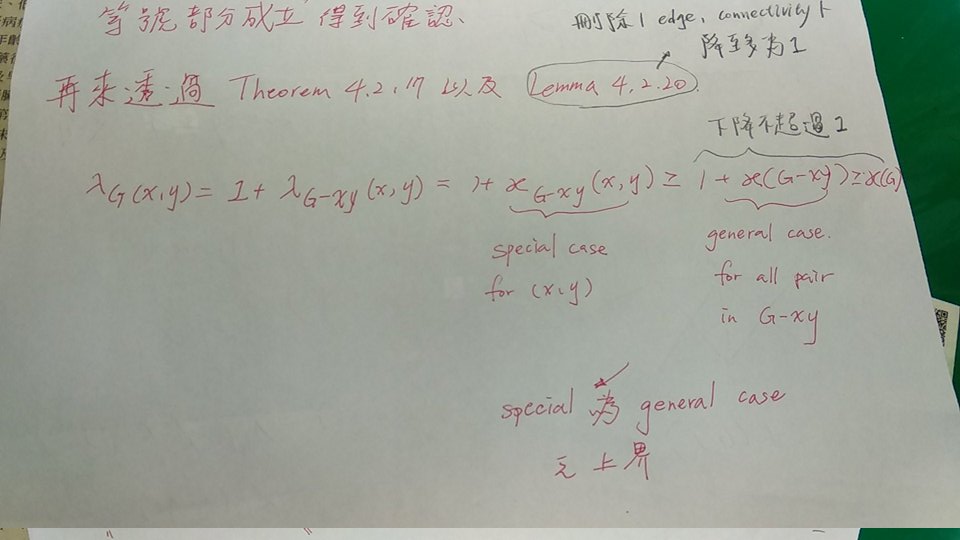 等號部分成立 得到確認、
刪除1 edge, connectivity下
降至多為1
再來透過 Theorem 4.2.17 以及 Lemma 4.2.20
下降不超過1
λG(x,y) = 1 + λG-xy(x,y) = 1 + ϰG-xy(x,y) ≥ 1 + ϰ(G-xy) ≥ ϰ(G)
special case
for (x,y)
general case.
for all pair
in G-xy
special 為 general case
之上界